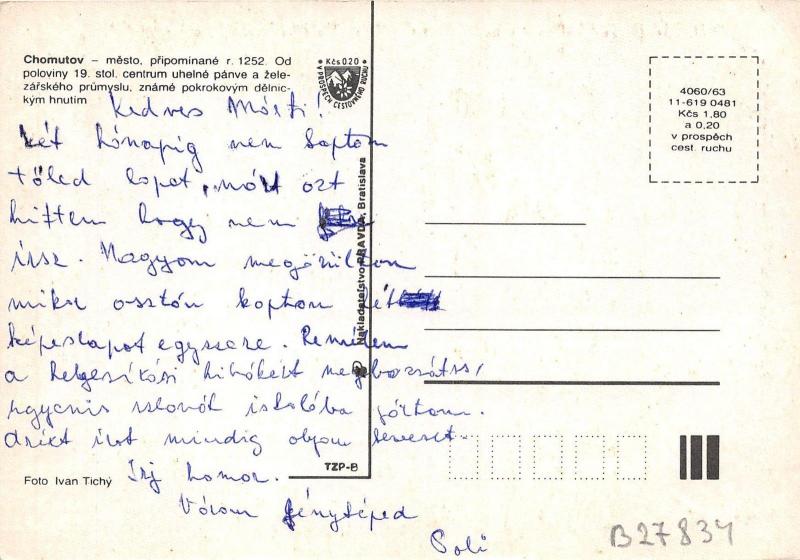 Chomutov – město, připomínané r. 1252. Od
poloviny 19. stol. centrum uhelné pánve a žele-
zářského průmyslu, známé pokrokovým dělnic-
kým hnutím
Kčs 0.20
V PROSPĚCH CESTOVNÉHO RUCHU
4060/63
11-619 0481
Kčs 1,80
a 0,20
v prospěch
cest. ruchu
Kedves Márti!
két hónapig nem kaptam
tőled lapot, már azt
hittem hogy nem
írsz. Nagyon megörültem
mikor osztán kaptam két
képeslapot egyszere. Remélem
a helyesírási hibákért megbocsátsz,
ugyanis szlovák iskolába jártam.
ezért írok mindig olyan keveset.
Írj hamar.
Várom fényképed
Nakladatelstvo PRAVDA, Bratislava
TZP-B
Foto Ivan Tichý
B27834